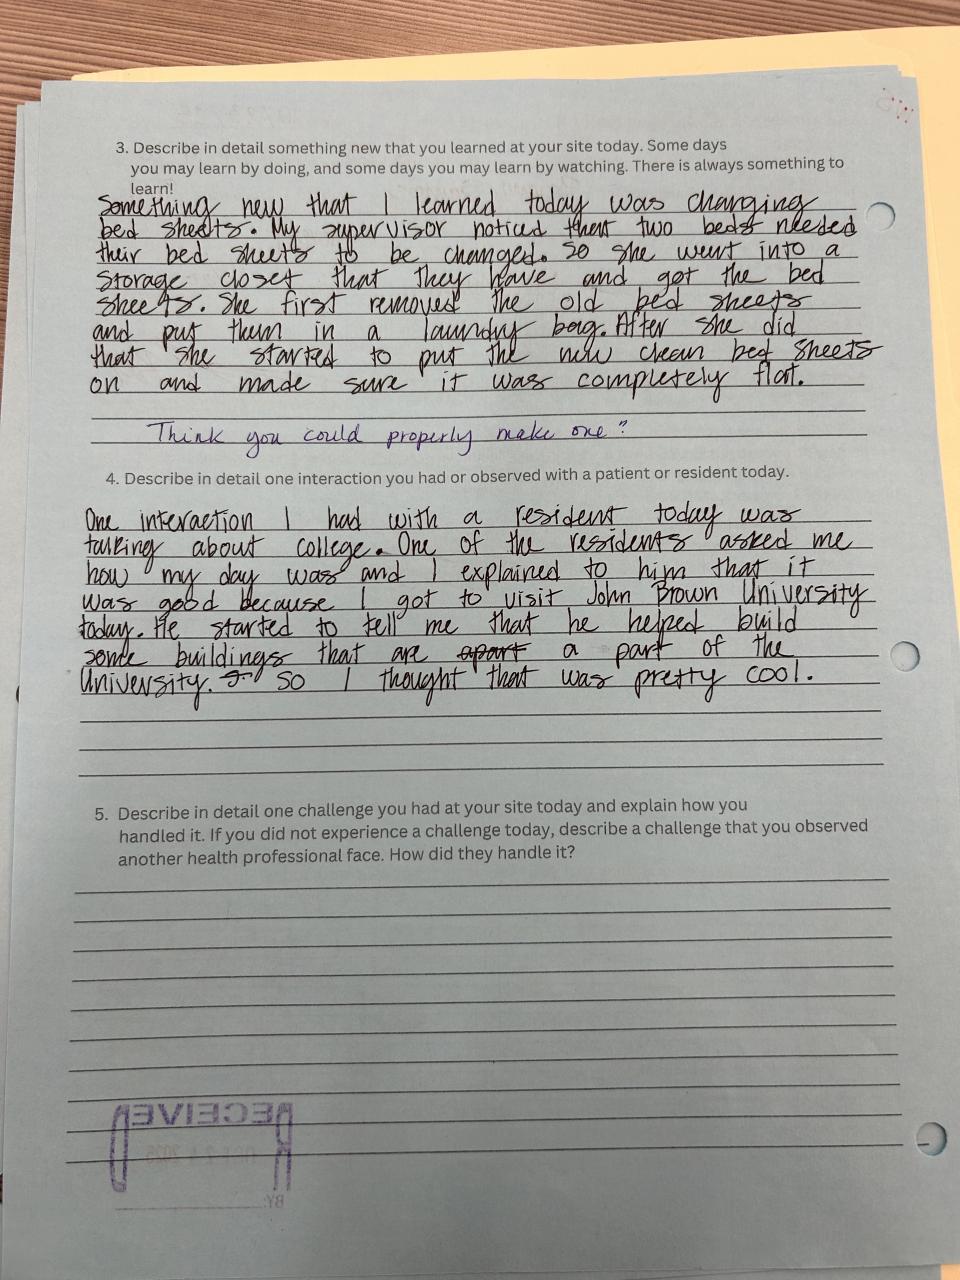 3. Describe in detail something new that you learned at your site today. Some days
you may learn by doing, and some days you may learn by watching. There is always something to
learn!
Something new that I learned today was changing
bed sheets. My supervisor noticed that two beds needed
their bed sheets to be changed. So she went into a
storage closet that they have and got the bed
sheets. She first removed the old bed sheets
and put them in a laundry bag. After she did
that she started to put the new clean bed sheets
on and made sure it was completely flat.
Think you could properly make one?
4. Describe in detail one interaction you had or observed with a patient or resident today.
One interaction I had with a resident today was
talking about college. One of the residents asked me
how my day was and I explained to him that it
was good because I got to visit John Brown University
today. He started to tell me that he helped build
some buildings that are apart a part of the
University. So I thought that was pretty cool.
5. Describe in detail one challenge you had at your site today and explain how you
handled it. If you did not experience a challenge today, describe a challenge that you observed
another health professional face. How did they handle it?
RECEIVED
BY: